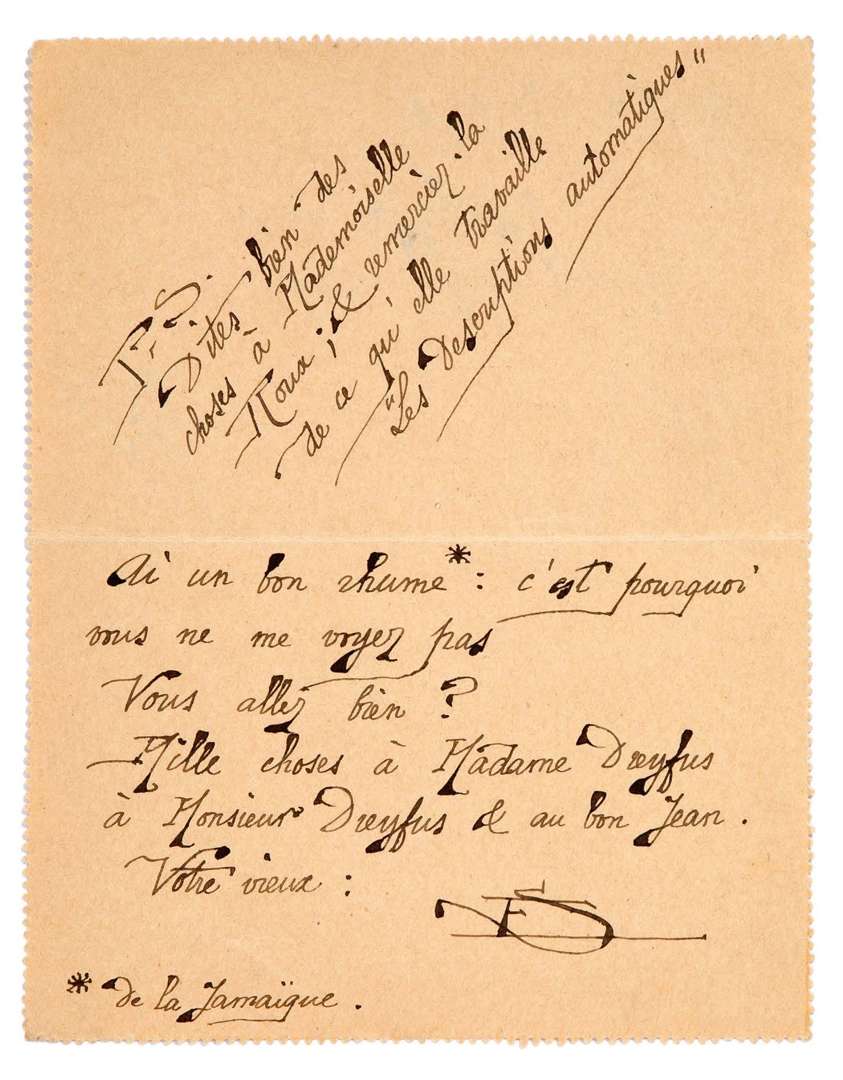 P.S.
Dites bien des
choses à Mademoiselle
Roux ; & remerciez-la
de ce qu'elle travaille
"Les Descriptions automatiques"
Ai un bon rhume* : c'est pourquoi
vous ne me voyez pas
Vous allez bien ?
Mille choses à Madame Dreyfus
à Monsieur Dreyfus & au bon Jean .
Votre vieux :
ES
* de la Jamaïque .